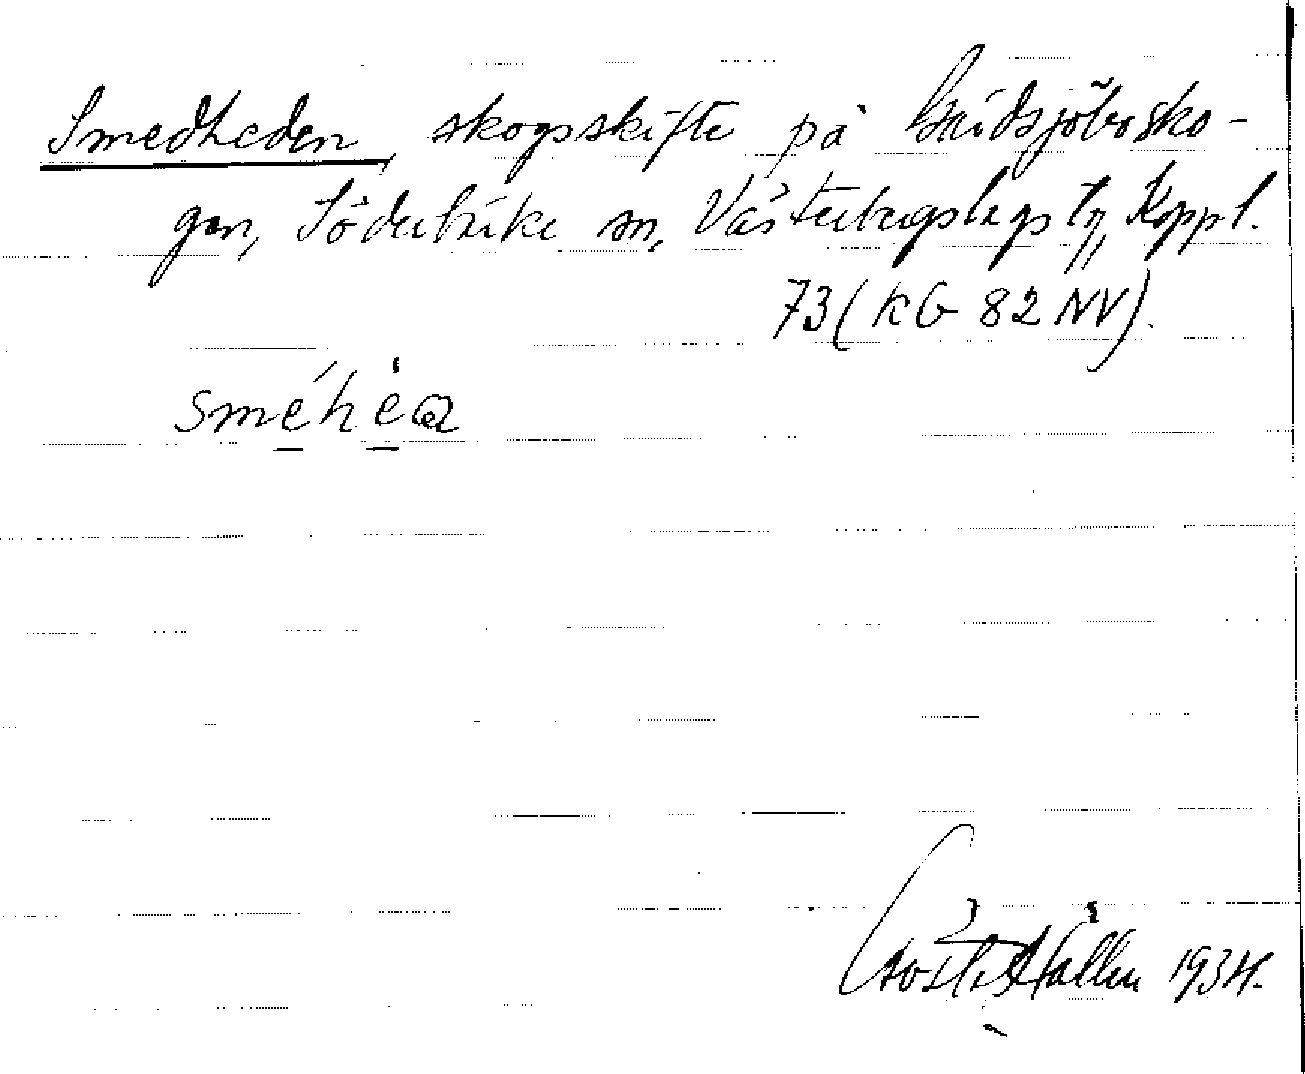 Smedheden, skogsskifte på Gräsdsjöbosko-
gen, Söderbärke sn, Västerbergslags tg, Koppl.
73 (KG 82 NV).
sméhèa
Gösta Hallén 1934.